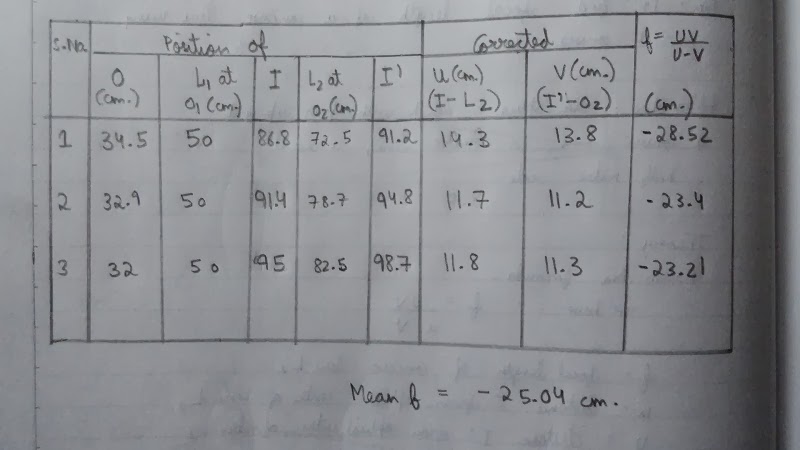 S.No. Position of Corrected f = UV / U-V
O (cm.) L₁ at O₁ (cm.) I L₂ at O₂ (cm) I' U (cm) (I - L₂) V (cm.) (I' - O₂) (cm.)
1 34.5 50 86.8 72.5 91.2 14.3 13.8 -28.52
2 32.9 50 91.4 78.7 94.8 11.7 11.2 -23.4
3 32 50 95 82.5 98.7 11.8 11.3 -23.21
Mean f = -25.04 cm.